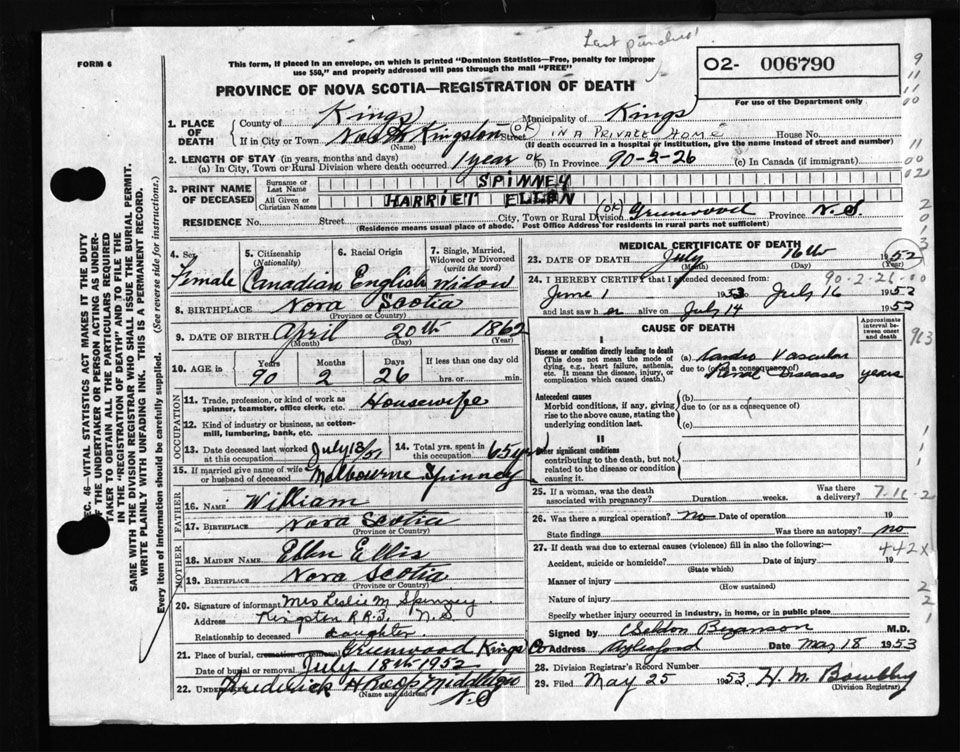 Last punched!
FORM 6
This form, if placed in an envelope, on which is printed "Dominion Statistics—Free, penalty for improper
use $50," and properly addressed will pass through the mail "FREE"
O2- 006790
PROVINCE OF NOVA SCOTIA—REGISTRATION OF DEATH
For use of the Department only
1. PLACE OF DEATH
County of Kings Municipality of Kings
If in City or Town North Kingston Street (OK) IN A PRIVATE HOME House No.
(Name) (If death occurred in a hospital or institution, give the name instead of street and number)
2. LENGTH OF STAY (in years, months and days)
(a) In City, Town or Rural Division where death occurred 1 year OK (b) In Province 90-2-26 (c) In Canada (if immigrant)
3. PRINT NAME OF DECEASED
Surname or Last Name SPINNEY
All Given or Christian Names HARRIET ELLEN
RESIDENCE No. Street City, Town or Rural Division (OK) Greenwood Province N.S.
(Residence means usual place of abode. Post Office Address for residents in rural parts not sufficient)
4. Sex Female
5. Citizenship (Nationality) Canadian
6. Racial Origin English
7. Single, Married, Widowed or Divorced (write the word) Widow
8. BIRTHPLACE Nova Scotia
(Province or Country)
9. DATE OF BIRTH April 20th 1862
(Month) (Day) (Year)
10. AGE in Years 90 Months 2 Days 26 If less than one day old hrs. or min.
OCCUPATION
11. Trade, profession, or kind of work as spinner, teamster, office clerk, etc. Housewife
12. Kind of industry or business, as cotton-mill, lumbering, bank, etc.
13. Date deceased last worked at this occupation July 13/51
14. Total yrs. spent in this occupation 65 years
15. If married give name of wife or husband of deceased Melbourne Spinney
FATHER
16. NAME William
17. BIRTHPLACE Nova Scotia
(Province or Country)
MOTHER
18. MAIDEN NAME Ellen Ellis
19. BIRTHPLACE Nova Scotia
(Province or Country)
20. Signature of informant Mrs Leslie M Spinney
Address Kingston R.R.3. N.S
Relationship to deceased daughter
21. Place of burial, cremation or removal Greenwood Kings Co
Date of burial or removal July 18th 1952
22. Undertaker Frederick H Roop Middleton N.S
(Name and address)
MEDICAL CERTIFICATE OF DEATH
23. DATE OF DEATH July 16th 1952
(Month) (Day) (Year)
24. I HEREBY CERTIFY that I attended deceased from: 90-2-26-00
June 1 1952 to July 16 1952
and last saw her alive on July 14 1952
CAUSE OF DEATH
Approximate interval between onset and death
I
Disease or condition directly leading to death
(This does not mean the mode of dying, e.g., heart failure, asthenia, etc. It means the disease, injury, or complication which caused death.)
(a) Cardio Vascular
due to (or as a consequence of)
Renal Diseases years
Antecedent causes
Morbid conditions, if any, giving rise to the above cause, stating the underlying condition last.
(b)
due to (or as a consequence of)
(c)
II
Other significant conditions
contributing to the death, but not related to the disease or condition causing it.
25. If a woman, was the death associated with pregnancy? Duration weeks. Was there a delivery?
7-16-2
26. Was there a surgical operation? no Date of operation 19
State findings Was there an autopsy? no
27. If death was due to external causes (violence) fill in also the following:— 442X
Accident, suicide or homicide? Date of injury 19
(State which)
Manner of injury
(How sustained)
Nature of injury
Specify whether injury occurred in industry, in home, or in public place
Signed by M.D.
Address Aylesford Date May 18 1953
28. Division Registrar's Record Number
29. Filed May 25 1953 H. M.
(Division Registrar)
SEC. 46—VITAL STATISTICS ACT MAKES IT THE DUTY
OF THE UNDERTAKER OR PERSON ACTING AS UNDER-
TAKER TO OBTAIN ALL THE PARTICULARS REQUIRED
IN THE "REGISTRATION OF DEATH" AND TO FILE THE
SAME WITH THE DIVISION REGISTRAR WHO SHALL ISSUE THE BURIAL PERMIT.
WRITE PLAINLY WITH UNFADING INK. THIS IS A PERMANENT RECORD.
Every item of information should be carefully supplied. (See reverse side for instructions.)